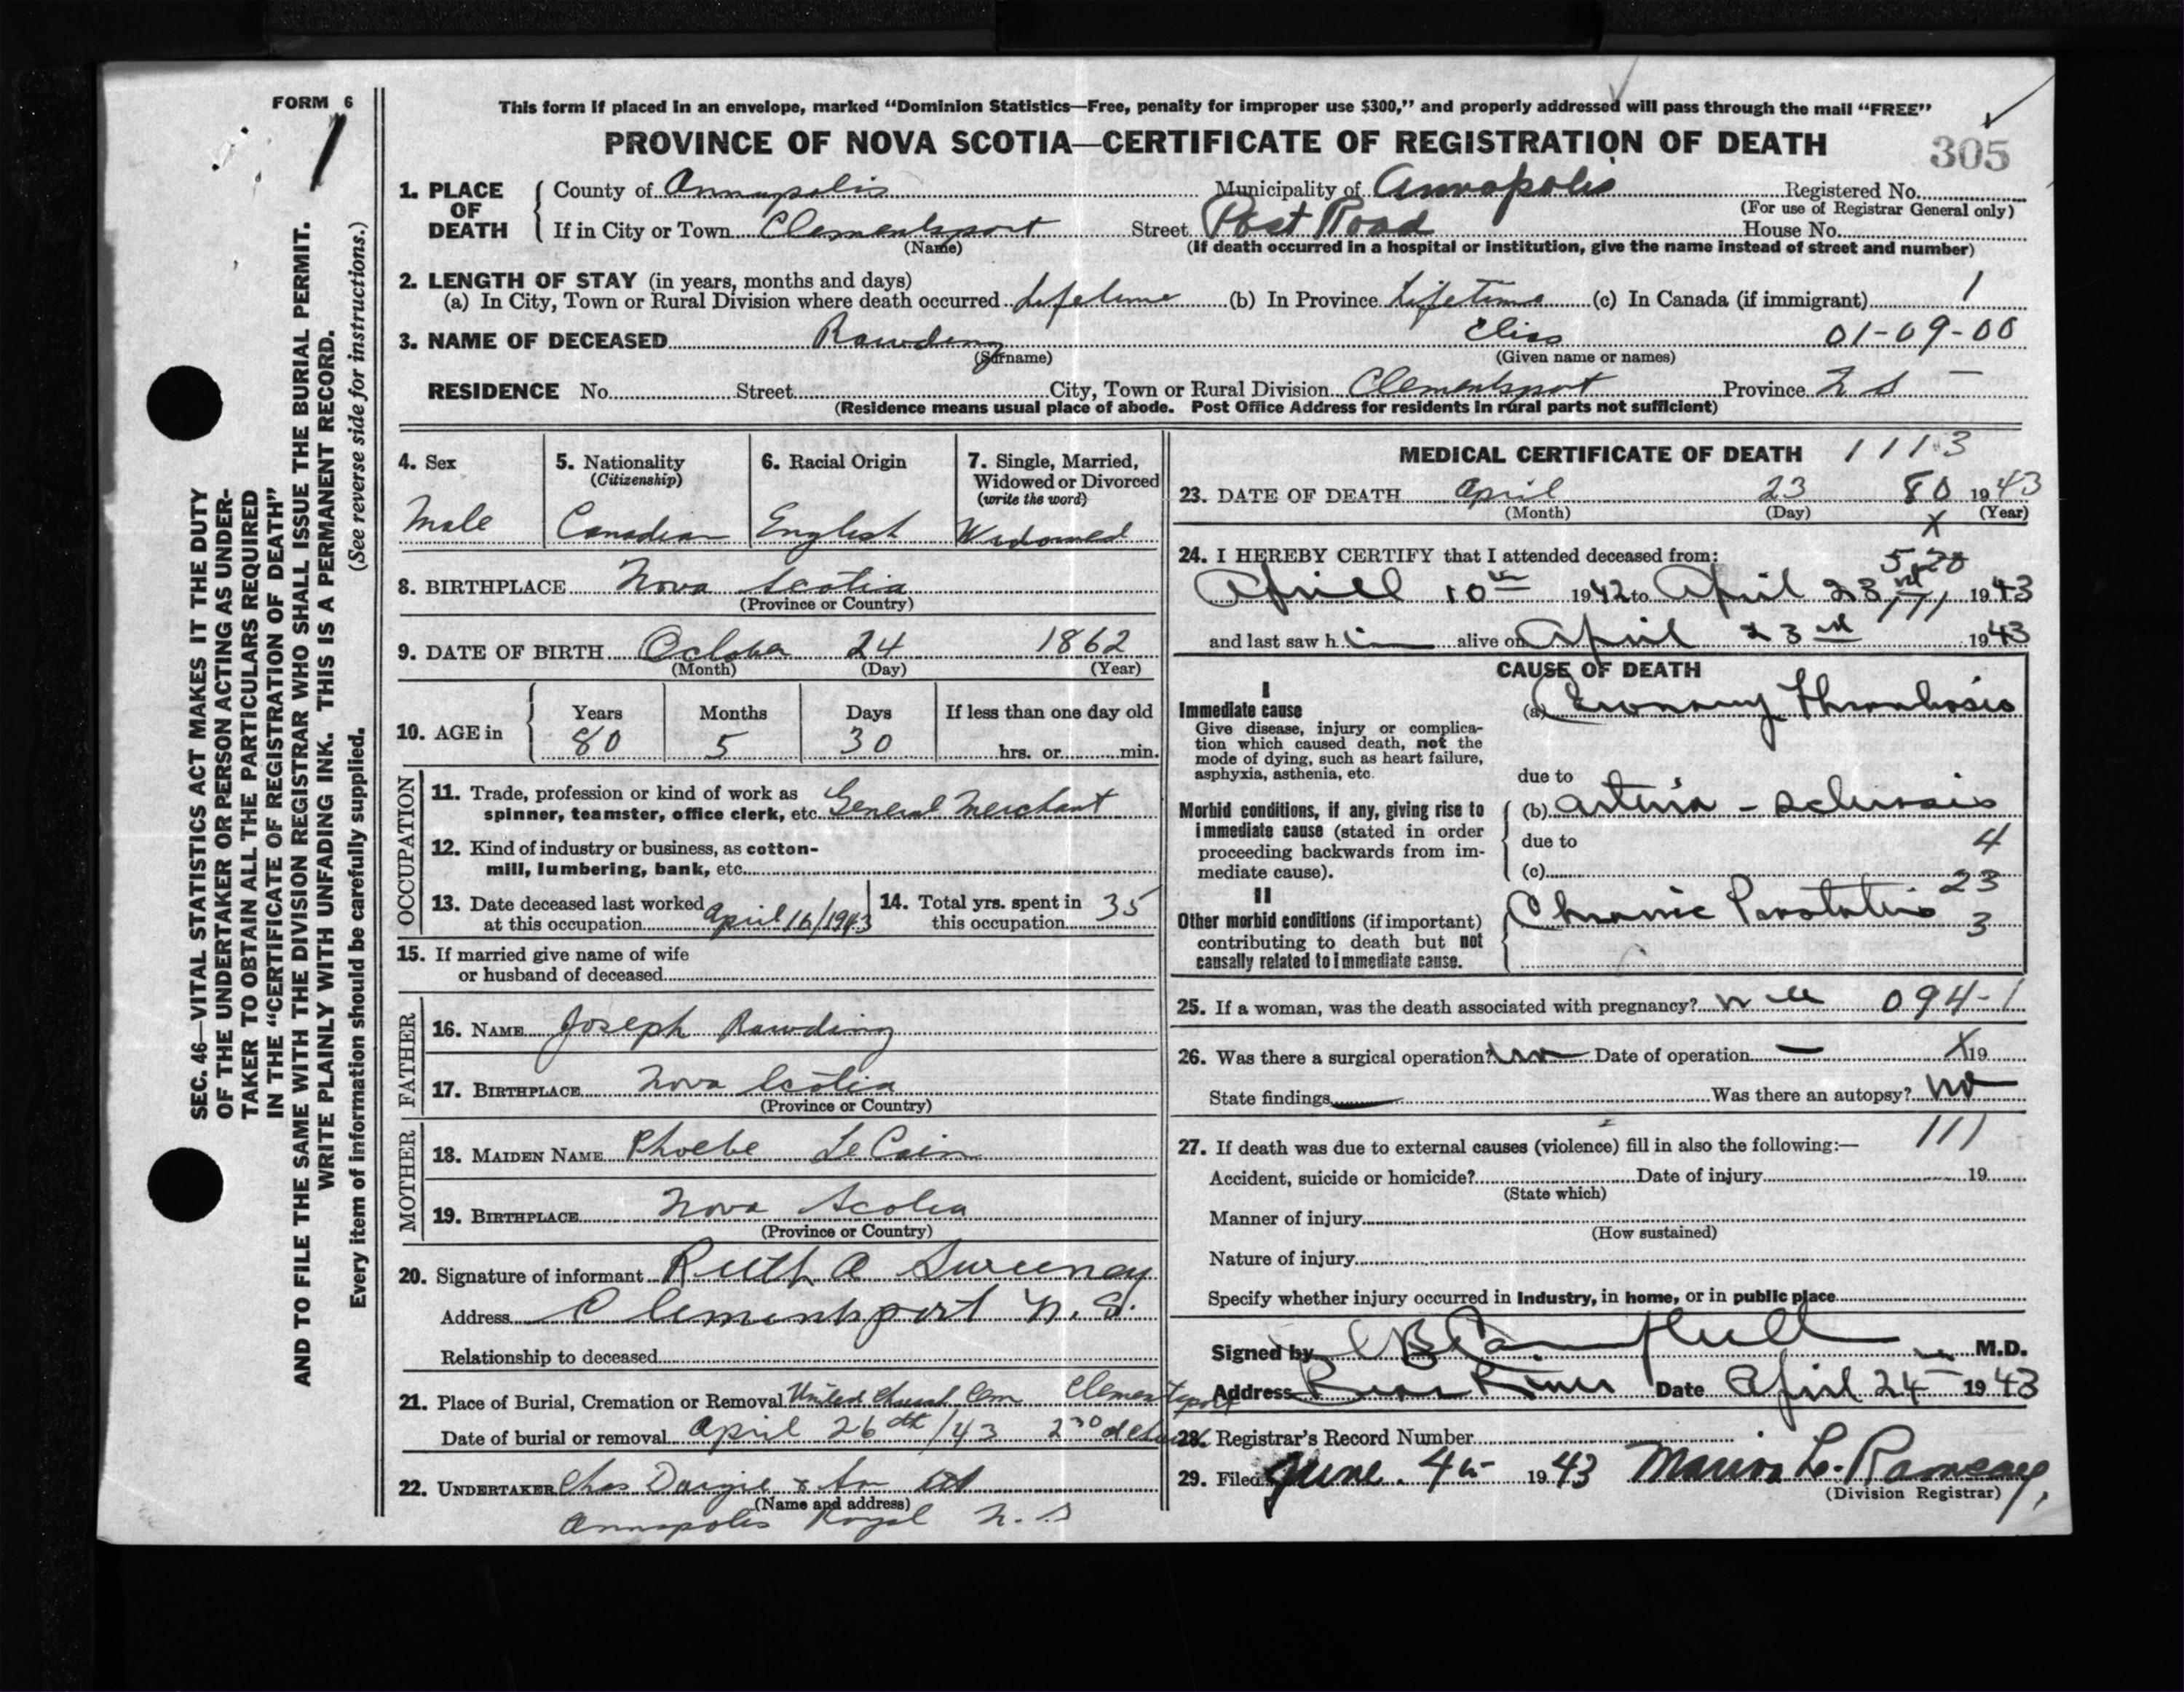 FORM 6
1
This form if placed in an envelope, marked “Dominion Statistics—Free, penalty for improper use $300,” and properly addressed will pass through the mail “FREE”
PROVINCE OF NOVA SCOTIA—CERTIFICATE OF REGISTRATION OF DEATH
305
1. PLACE OF DEATH
County of Annapolis Municipality of Annapolis Registered No.
(For use of Registrar General only)
If in City or Town Clementsport Street Post Road House No.
(Name) (If death occurred in a hospital or institution, give the name instead of street and number)
2. LENGTH OF STAY (in years, months and days)
(a) In City, Town or Rural Division where death occurred Lifetime (b) In Province Lifetime (c) In Canada (if immigrant) 1
3. NAME OF DECEASED Rawding Elias 01-09-00
(Surname) (Given name or names)
RESIDENCE No. Street City, Town or Rural Division Clementsport Province N S
(Residence means usual place of abode. Post Office Address for residents in rural parts not sufficient)
4. Sex
Male
5. Nationality
(Citizenship)
Canadian
6. Racial Origin
English
7. Single, Married,
Widowed or Divorced
(write the word)
Widowed
8. BIRTHPLACE Nova Scotia
(Province or Country)
9. DATE OF BIRTH October 24 1862
(Month) (Day) (Year)
10. AGE in
Years Months Days If less than one day old
80 5 30 hrs. or min.
OCCUPATION
11. Trade, profession or kind of work as
spinner, teamster, office clerk, etc. General Merchant
12. Kind of industry or business, as cotton-
mill, lumbering, bank, etc.
13. Date deceased last worked
at this occupation April 16/1943
14. Total yrs. spent in
this occupation 35
15. If married give name of wife
or husband of deceased
FATHER
16. NAME Joseph Rawding
17. BIRTHPLACE Nova Scotia
(Province or Country)
MOTHER
18. MAIDEN NAME Phoebe LeCain
19. BIRTHPLACE Nova Scotia
(Province or Country)
20. Signature of informant Ruth A Sweeney
Address Clementsport N.S.
Relationship to deceased
21. Place of Burial, Cremation or Removal United Church Cem Clementsport
Date of burial or removal April 26th/43 2 30 o'clock
22. UNDERTAKER Chas Dargie & Son Ltd
(Name and address)
Annapolis Royal N.S
MEDICAL CERTIFICATE OF DEATH 1113
23. DATE OF DEATH April 23 80 1943
(Month) (Day) (Year)
X
24. I HEREBY CERTIFY that I attended deceased from:
5.20
Aprill 10th 1942 to April 23rd 1943
111
and last saw him alive on April 23rd 1943
CAUSE OF DEATH
I
Immediate cause
Give disease, injury or complica-
tion which caused death, not the
mode of dying, such as heart failure,
asphyxia, asthenia, etc.
(a) Coronary Thrombosis
due to
Morbid conditions, if any, giving rise to
immediate cause (stated in order
proceeding backwards from im-
mediate cause).
(b) Arterio-sclerosis
due to 4
(c) 23
II
Other morbid conditions (if important)
contributing to death but not
causally related to immediate cause.
Chronic Prostatitis 3
25. If a woman, was the death associated with pregnancy? 094-1
26. Was there a surgical operation? no Date of operation — X 19
State findings — Was there an autopsy? no
27. If death was due to external causes (violence) fill in also the following:— 111
Accident, suicide or homicide? Date of injury 19
(State which)
Manner of injury
(How sustained)
Nature of injury
Specify whether injury occurred in Industry, in home, or in public place
Signed by Campbell M.D.
Address Bear River Date April 24 1943
28. Registrar's Record Number
29. Filed June 4th 1943 Marion L. Ramsay,
(Division Registrar)
SEC. 46—VITAL STATISTICS ACT MAKES IT THE DUTY
OF THE UNDERTAKER OR PERSON ACTING AS UNDER-
TAKER TO OBTAIN ALL THE PARTICULARS REQUIRED
IN THE “CERTIFICATE OF REGISTRATION OF DEATH”
AND TO FILE THE SAME WITH THE DIVISION REGISTRAR WHO SHALL ISSUE THE BURIAL PERMIT.
WRITE PLAINLY WITH UNFADING INK. THIS IS A PERMANENT RECORD.
Every item of information should be carefully supplied. (See reverse side for instructions.)